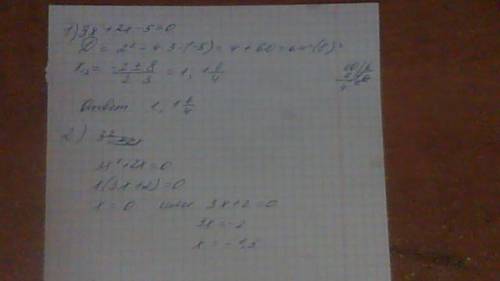 1) 3x² + 2x - 5 = 0
D = 2² - 4·3·(-5) = 4 + 60 = 64 (8)²
x₁,₂ = (-2 ± 8)/(2·3) = 1,
Ответ 1,
2)
3x² + 2x = 0
x(3x + 2) = 0
x = 0 или 3x + 2 = 0
3x = -2